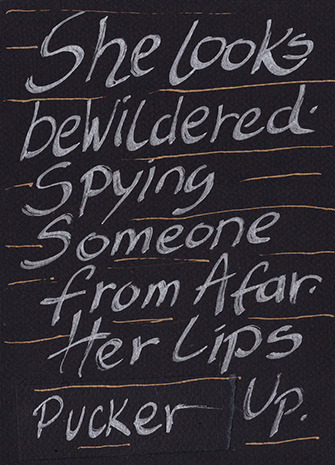 She looks
bewildered.
Spying
Someone
from Afar.
Her Lips
Pucker Up.